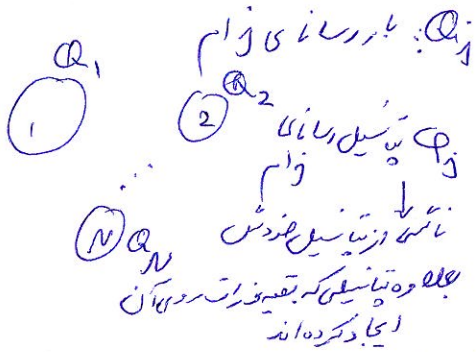 Q_j: بار رسانای j ام
Q_1
1
2 Q_2
φ_j پتانسیل رسانای
j ام
...
ناشی از پتانسیل خودش
N Q_N
بعلاوه پتانسیلی که بقیه ذرات روی آن
ایجاد کرده اند